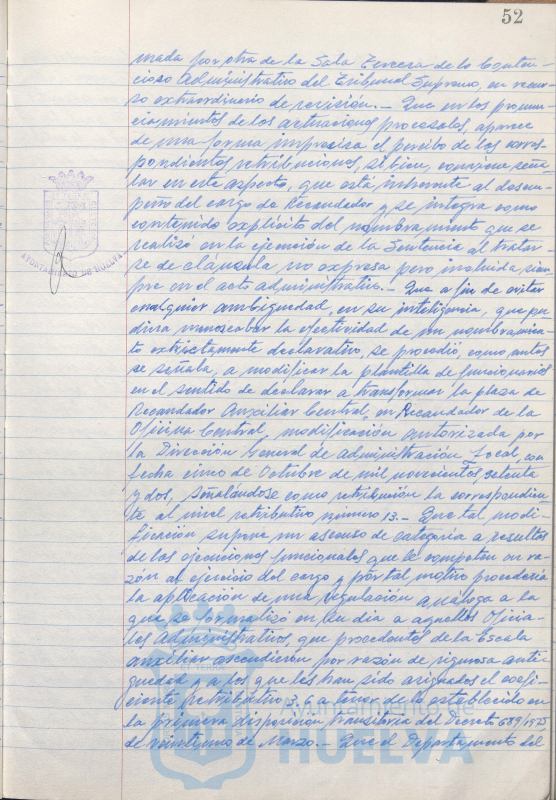 52
mada por otra de la Sala Tercera de lo Conten-
cioso Administrativo del Tribunal Supremo, en recur-
so extraordinario de revisión.- Que en los pronun-
ciamientos de las actuaciones procesales, aparece
de una forma imprecisa el percibo de las corres-
pondientes retribuciones, si bien, conviene seña-
lar en este aspecto, que está inherente al desem-
peño del cargo de Recaudador y se integra como
contenido explícito del nombramiento que se
realizó en la ejecución de la Sentencia al tratar-
se de cláusula no expresa pero incluida siem-
pre en el acto administrativo.- Que a fin de evitar
cualquier ambigüedad, en su inteligencia, que pu-
diera menoscabar la efectividad de un nombramien-
to estrictamente declarativo, se procedió, como antes
se señala, a modificar la plantilla de funcionarios
en el sentido de declarar a transformar la plaza de
Recaudador Auxiliar Central, en Recaudador de la
Oficina Central, modificación autorizada por
la Dirección General de Administración Local, con
fecha cinco de Octubre de mil novecientos setenta
y dos, señalándose como retribución la correspondien-
te al nivel retributivo número 13.- Que tal modi-
ficación supone un ascenso de categoría a resultas
de las funcionales que le competen en ra-
zón al ejercicio del cargo y por tal motivo procedería
la aplicación de una regulación análoga a la
que se formalizó en su día a aquellos Oficia-
les Administrativos, que procedentes de la Escala
auxiliar ascendieron por razón de rigurosa anti-
güedad y a los que les han sido asignados el coefi-
ciente retributivo 3,6 a tenor de lo establecido en
la primera disposición transitoria del Decreto 689/1975
de veintiuno de Marzo.- Que el Departamento del
AYUNTAMIENTO DE HUELVA
Ayuntamiento de
HUELVA